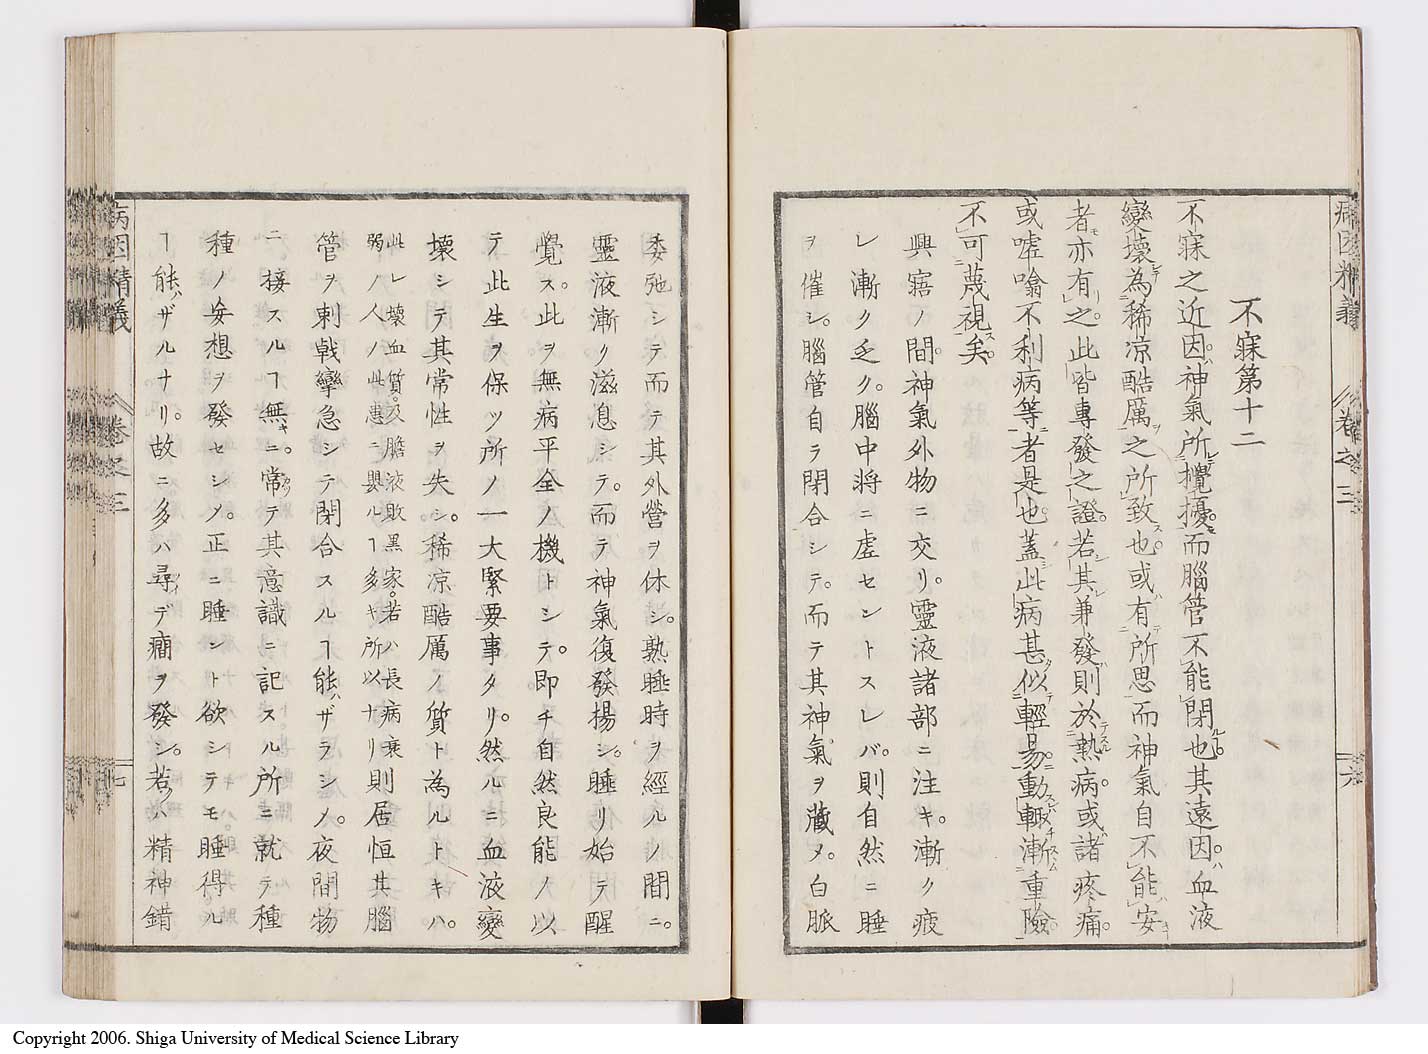 病因精義
卷之三
六
不寐第十二
不寐之近因ハ神氣所攪擾而腦管不能閉也其遠因ハ血液
變壞為稀凉酷厲之所致也或有所思而神氣自不能安
者亦有之此皆專發之證若其兼發則於熱病或諸疼痛
或嘘噏不利病等者是也蓋此病甚似輕易動輙漸重險
不可蔑視矣
興寤ノ間神氣外物ニ交リ靈液諸部ニ注キ漸ク疲
レ漸ク乏ク腦中将ニ虚セントスレバ則自然ニ睡
ヲ催シ腦管自ラ閉合シテ而テ其神氣ヲ藏メ白脈
委弛シテ而テ其外營ヲ休シ熟睡時ヲ經ルノ間ニ
靈液漸ク滋息シテ而テ神氣復發揚シ睡リ始テ醒
覺ス此ヲ無病平全ノ機トシテ即チ自然良能ノ以
テ此生ヲ保ツ所ノ一大緊要事タリ然ルニ血液變
壞シテ其常性ヲ失シ稀凉酷厲ノ質ト為ルトキハ
此レ壞血質及膽液敗黒家若ハ長病衰
弱ノ人此患ニ嬰ルヿ多キ所以ナリ則居恒其腦
管ヲ刺戟攣急シテ閉合スルヿ能ハザラシノ夜間物
ニ接スルヿ無キニ常テ其意識ニ記スル所ニ就テ種
種ノ妄想ヲ發セシノ正ニ睡ント欲シテモ睡得ル
ヿ能ハザルナリ故ニ多ハ尋デ癇ヲ發シ若ハ精神錯
病因精義
卷之三
七
Copyright 2006. Shiga University of Medical Science Library